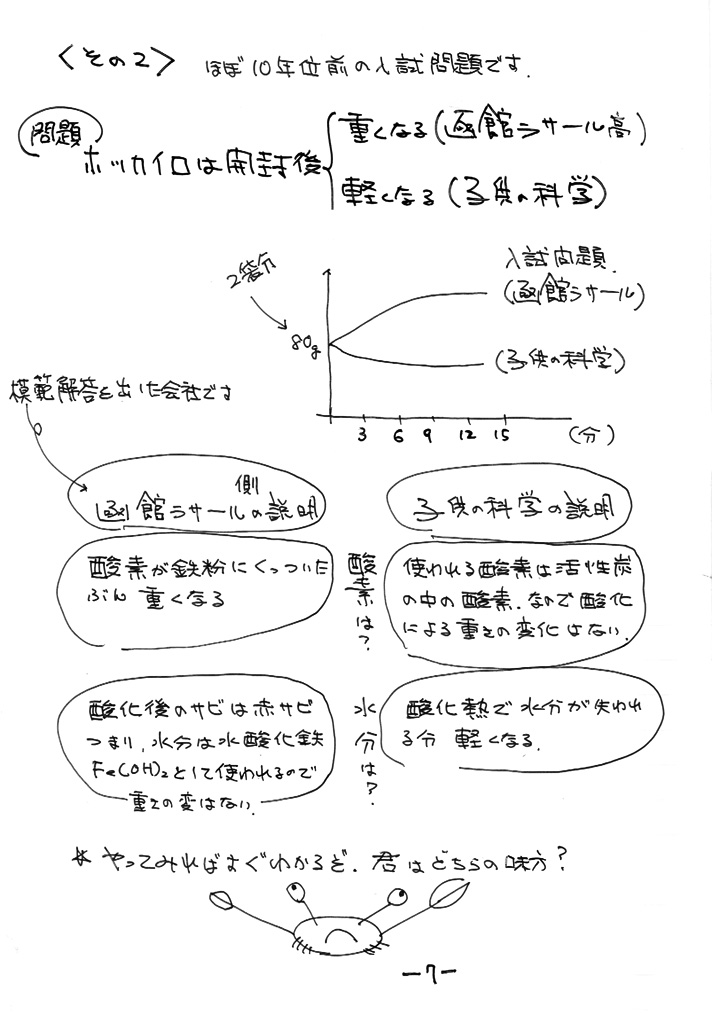 〈その2〉 ほぼ10年位前の入試問題です.
問題
ホッカイロは開封後
重くなる(函館ラサール高)
軽くなる(子供の科学)
2袋分
80g
入試問題.
(函館ラサール)
(子供の科学)
3 6 9 12 15 (分)
模範解答を出した会社です
函館ラサール側の説明
子供の科学の説明
酸素が鉄粉にくっついた
ぶん 重くなる
酸素は?
使われる酸素は活性炭
の中の酸素.なので酸化
による重さの変化はない.
酸化後のサビは赤サビ
つまり,水分は水酸化鉄
Fe(OH)₂として使われるので
重さの変はない.
水分は?
酸化熱で水分が失われ
る分 軽くなる.
* やってみればすぐわかるぞ.君はどちらの味方?
-7-